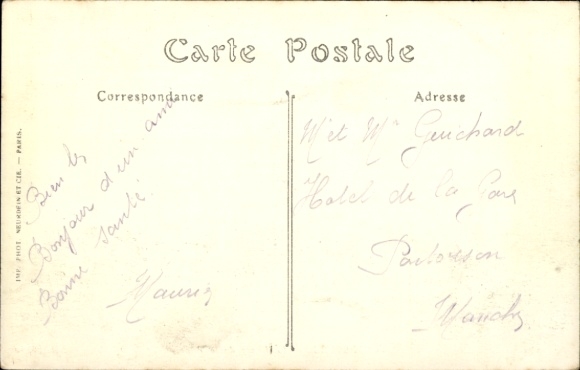 Carte Postale
Correspondance
Adresse
Bien le
Bonjour d'un ami
Bonne santé
Maurice
M et Me Guichard
Hotel de la Gare
Pontorson
Manche
IMP. PHOT. NEURDEIN ET CIE. — PARIS.